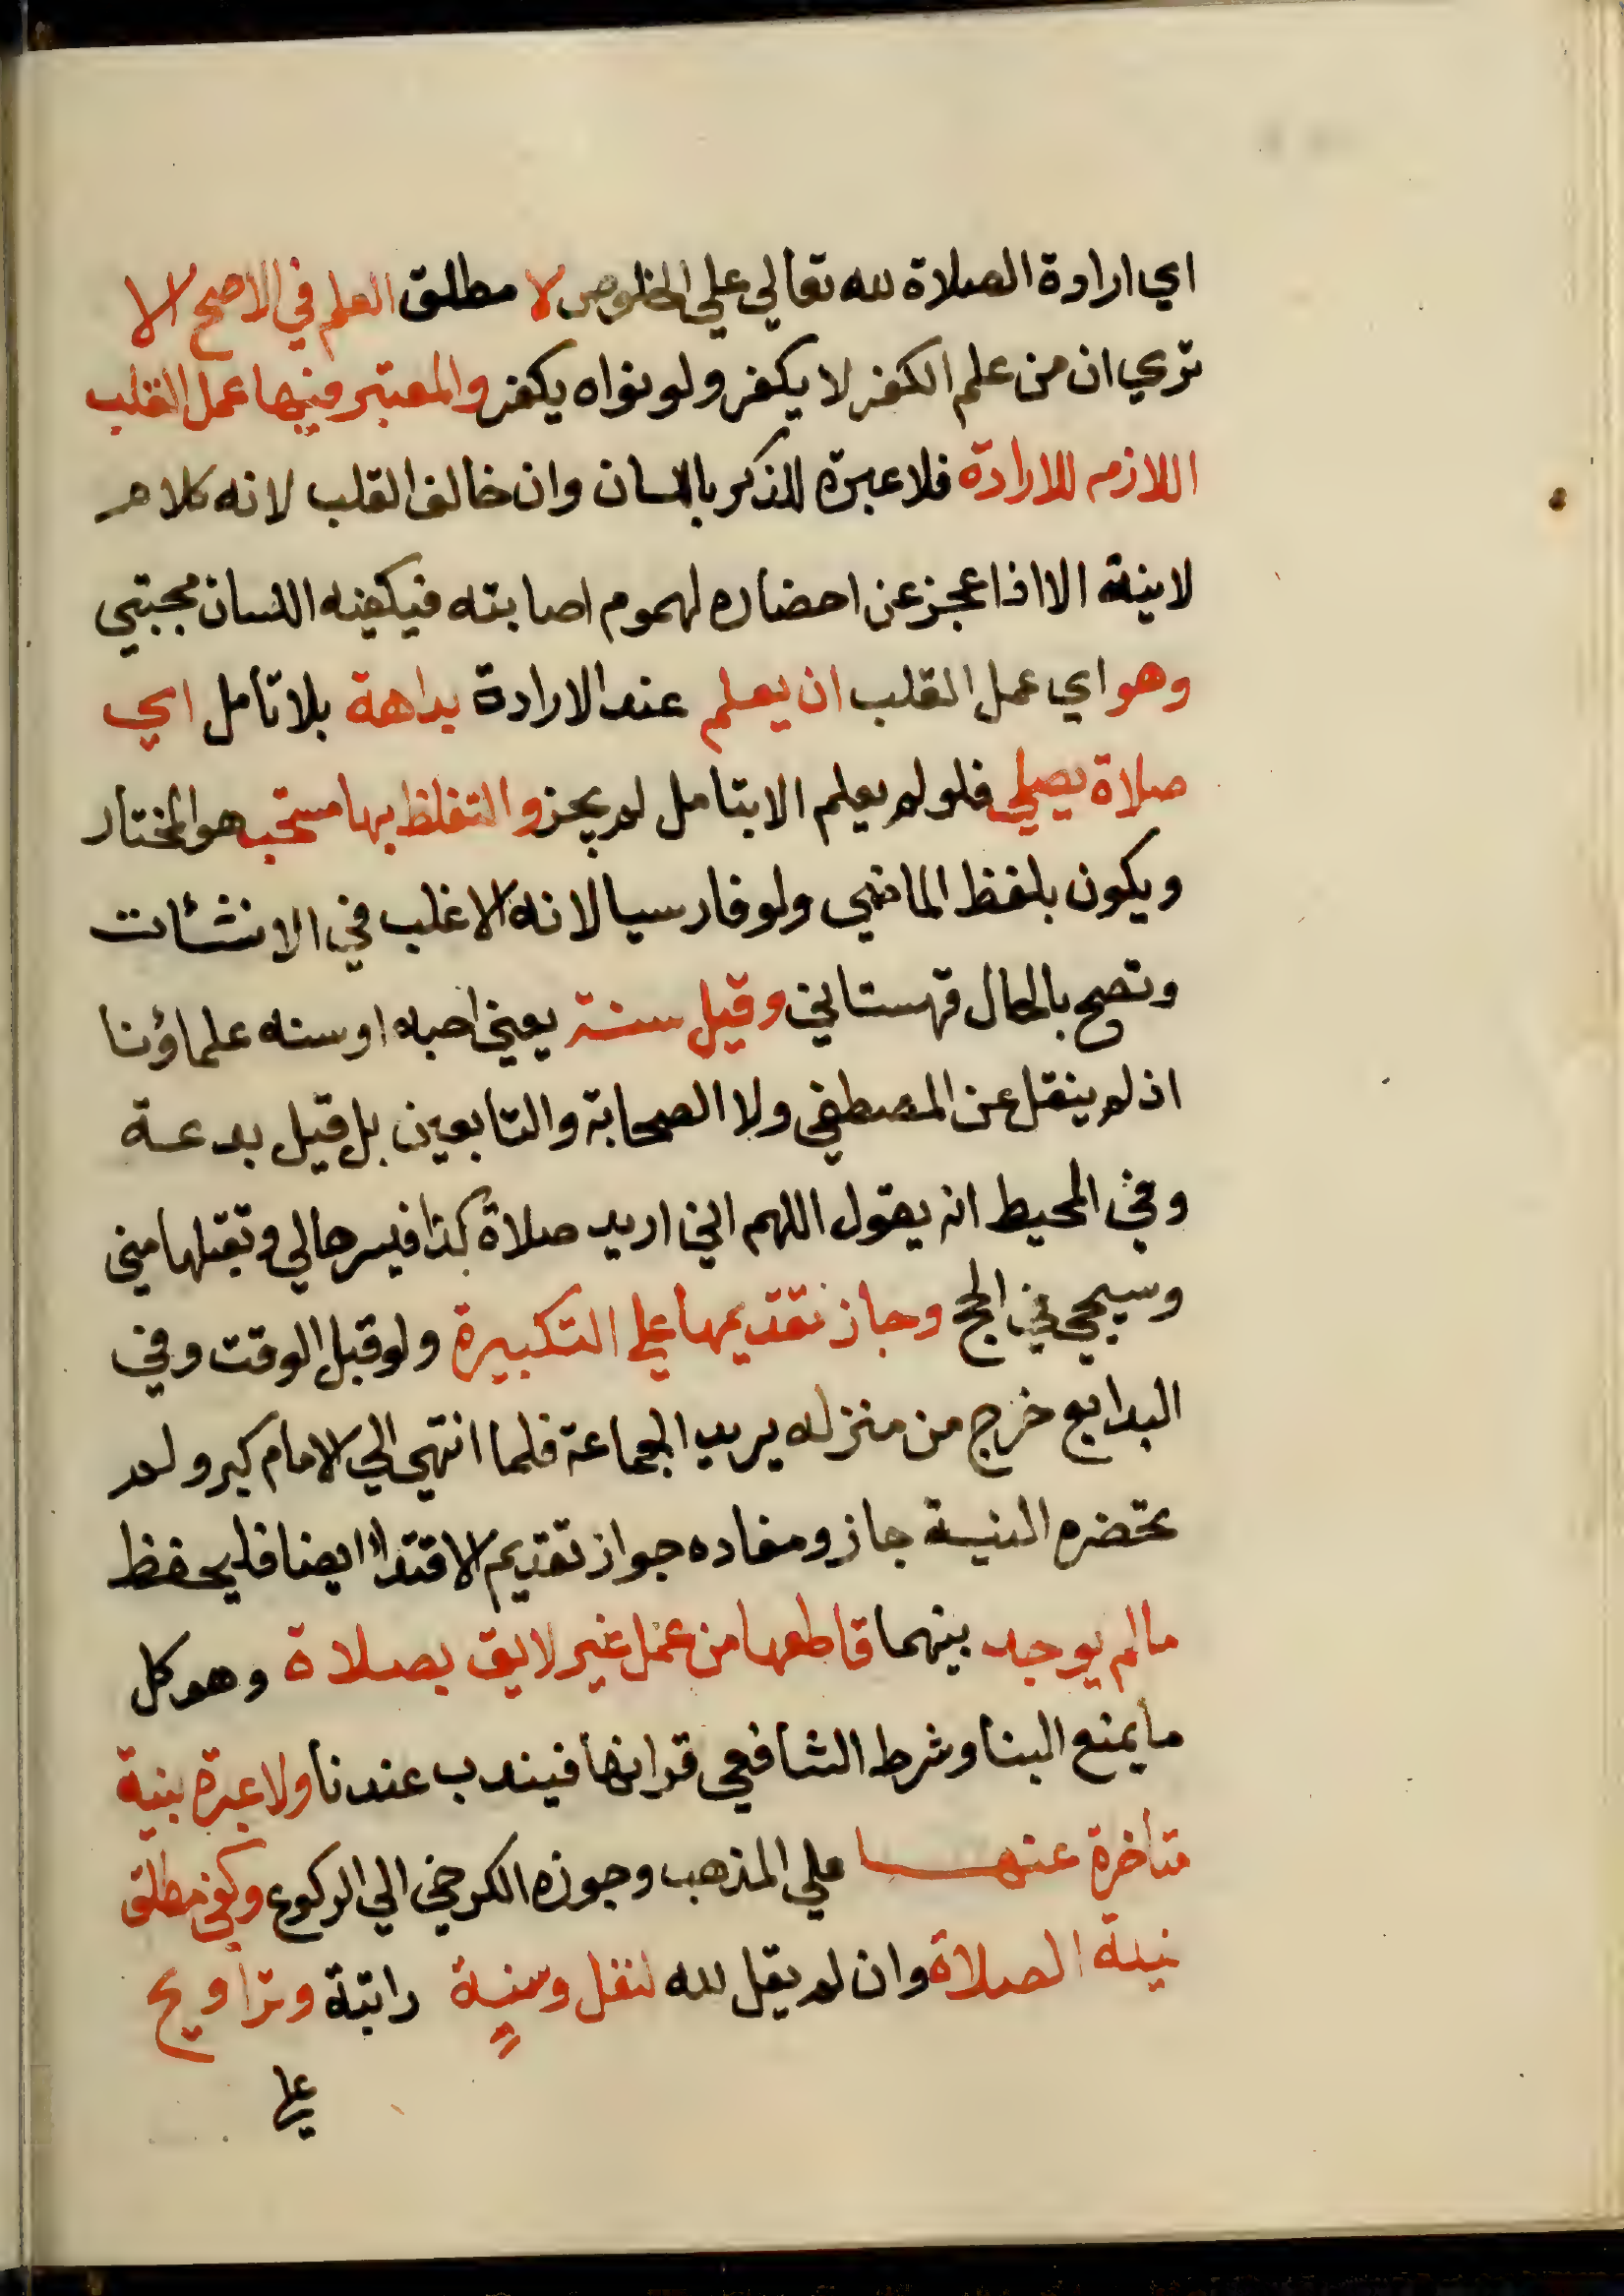 اي ارادة الصلاة لله تعالي علي الخلوص لا مطلق العلم في الاصح الا
تري ان من علم الكفر لا يكفر ولو نواه يكفر والمعتبر فيها عمل القلب
اللازم للارادة فلا عبرة للذكر باللسان وان خالف القلب لانه كلام
لا ينة الا اذا عجز عن احضاره لهموم اصابته فيكفيه اللسان مجتبي
وهو اي عمل القلب ان يعلم عند الارادة بداهة بلا تأمل اي
صلاة يصلي فلو لم يعلم الا بتامل لم يجز والتفلظ بها مستحب هو المختار
ويكون بلفظ الماضي ولو فارسيا لانه الاغلب في الانشئات
وتصح بالحال قهستاني وقيل سنة يعني احبه او سنه علماؤنا
اذ لم ينقل عن المصطفي ولا الصحابة والتابعين بل قيل بدعة
وفي المحيط انه يقول اللهم اني اريد صلاة كذا فيسرها لي وتقبلها مني
وسيجي في الحج وجاز تقديمها علي التكبيرة ولو قبل الوقت وفي
البدايع خرج من منزله يريد الجماعة فلما انتهي الي الامام كبر ولم
تحضره النية جاز ومفاده جواز تقديم الاقتداء ايضا فليحفظ
مالم يوجد بينهما قاطعها من عمل غير لايق بصلاة وهو كل
ما يمنع البنا وشرط الشافعي قرانها فيندب عندنا ولا عبرة بنية
متأخرة عنها علي المذهب وجوزه الكرخي الي الركوع وكفي مطلق
نية الصلاة وان لم يقل لله لنفل وسنة راتبة وتراويح
علي